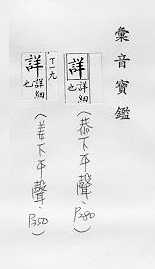 彙音寶鑑
詳 詳細也
(恭下平聲，P280)
丁一九
詳 詳細也
(姜下平聲，P350)